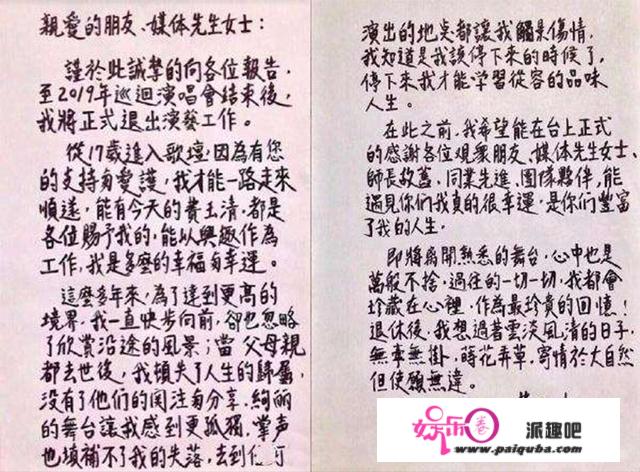 親愛的朋友、媒体先生女士：
謹於此誠摯的向各位報告，
至2019年巡迴演唱會結束後，
我將正式退出演藝工作。
從17歲進入歌壇，因為有您
的支持与愛護，我才能一路走來
順遂，能有今天的費玉清，都是
各位賜予我的，能以興趣作為
工作，我是多麼的幸福与幸運。
這麼多年來，為了達到更高的
境界，我一直快步向前，卻也忽略
了欣賞沿途的風景；當父母親
都去世後，我頓失了人生的歸屬，
沒有了他們的関注与分享，絢麗
的舞台讓我感到更孤獨，掌声
也填補不了我的失落，去到任何
演出的地点都讓我觸景傷情，
我知道是我該停下來的時候了，
停下來我才能学習從容的品味
人生。
在此之前，我希望能在台上正式
的感謝各位观眾朋友、媒体先生女士、
師長故舊、同業先進、團隊夥伴，能
遇見你們我真的很幸運，是你們豐富
了我的人生。
即將离開熟悉的舞台，心中也是
萬般不捨，過往的一切一切，我都會
珍藏在心裡，作為最珍貴的回憶！
退休後，我想過著雲淡風清的日子，
無牽無掛，蒔花弄草，寄情於大自然
但使願無違。
娱乐圈 派趣吧
www.paiquba.com